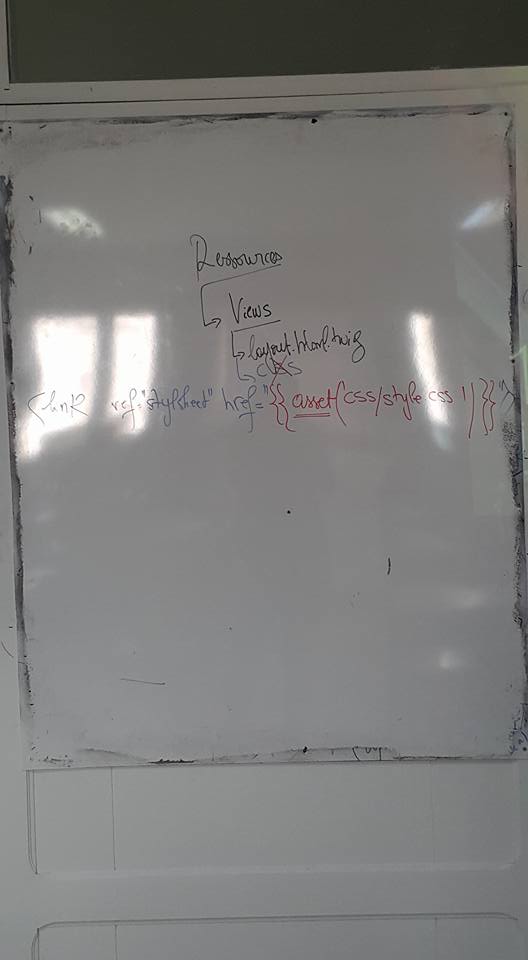 Ressources
Views
layout.html.twig
CSS
<link ref="stylsheet" href="{{ asset('css/style.css') }}">